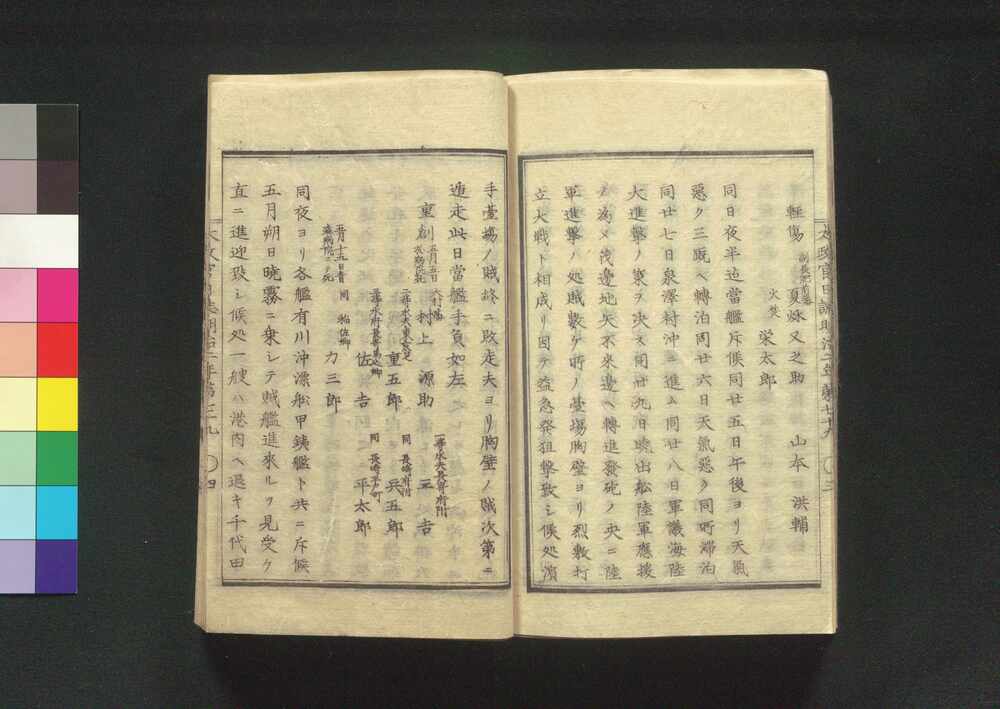 輕傷
副長肥前藩
夏秌又之助
山本 洪輔
火焚
栄太郎
同日夜半迄當艦斥候同廿五日午後ヨリ天氣
惡ク三厩ヘ轉泊同廿六日天氣惡ク同所滞泊
同廿七日泉澤村沖ニ進ム同廿八日軍議海陸
大進撃ノ策ヲ決ス同廿九日暁出舩陸軍應援
ノ為メ茂邊地矢不來邊ヘ轉進發砲ノ央ニ陸
軍進撃ノ処賊數ケ所ノ䑓場胸壁ヨリ烈敷打
立大戦ト相成リ因テ益急發狙撃致シ候処濱
手䑓場ノ賊終ニ敗走夫ヨリ胸壁ノ賊次第ニ
逃走此日當艦手負如左
重創
五月五日
大村藩
村上 源助
一等水夫長﨑府附
三吉
重五郎
同 長﨑府附
兵五郎
佐吉
同 長﨑平戸町
平太郎
同 稲佐郷
力三郎
同夜ヨリ各艦有川沖漂舩甲鉄艦ト共ニ斥候
五月朔日曉霧ニ乗シテ賊艦進來ルヲ見受ケ
直ニ進迎致シ候処一艘ハ港内ヘ退キ千代田
太政官日誌明治二年第七十九 〇三